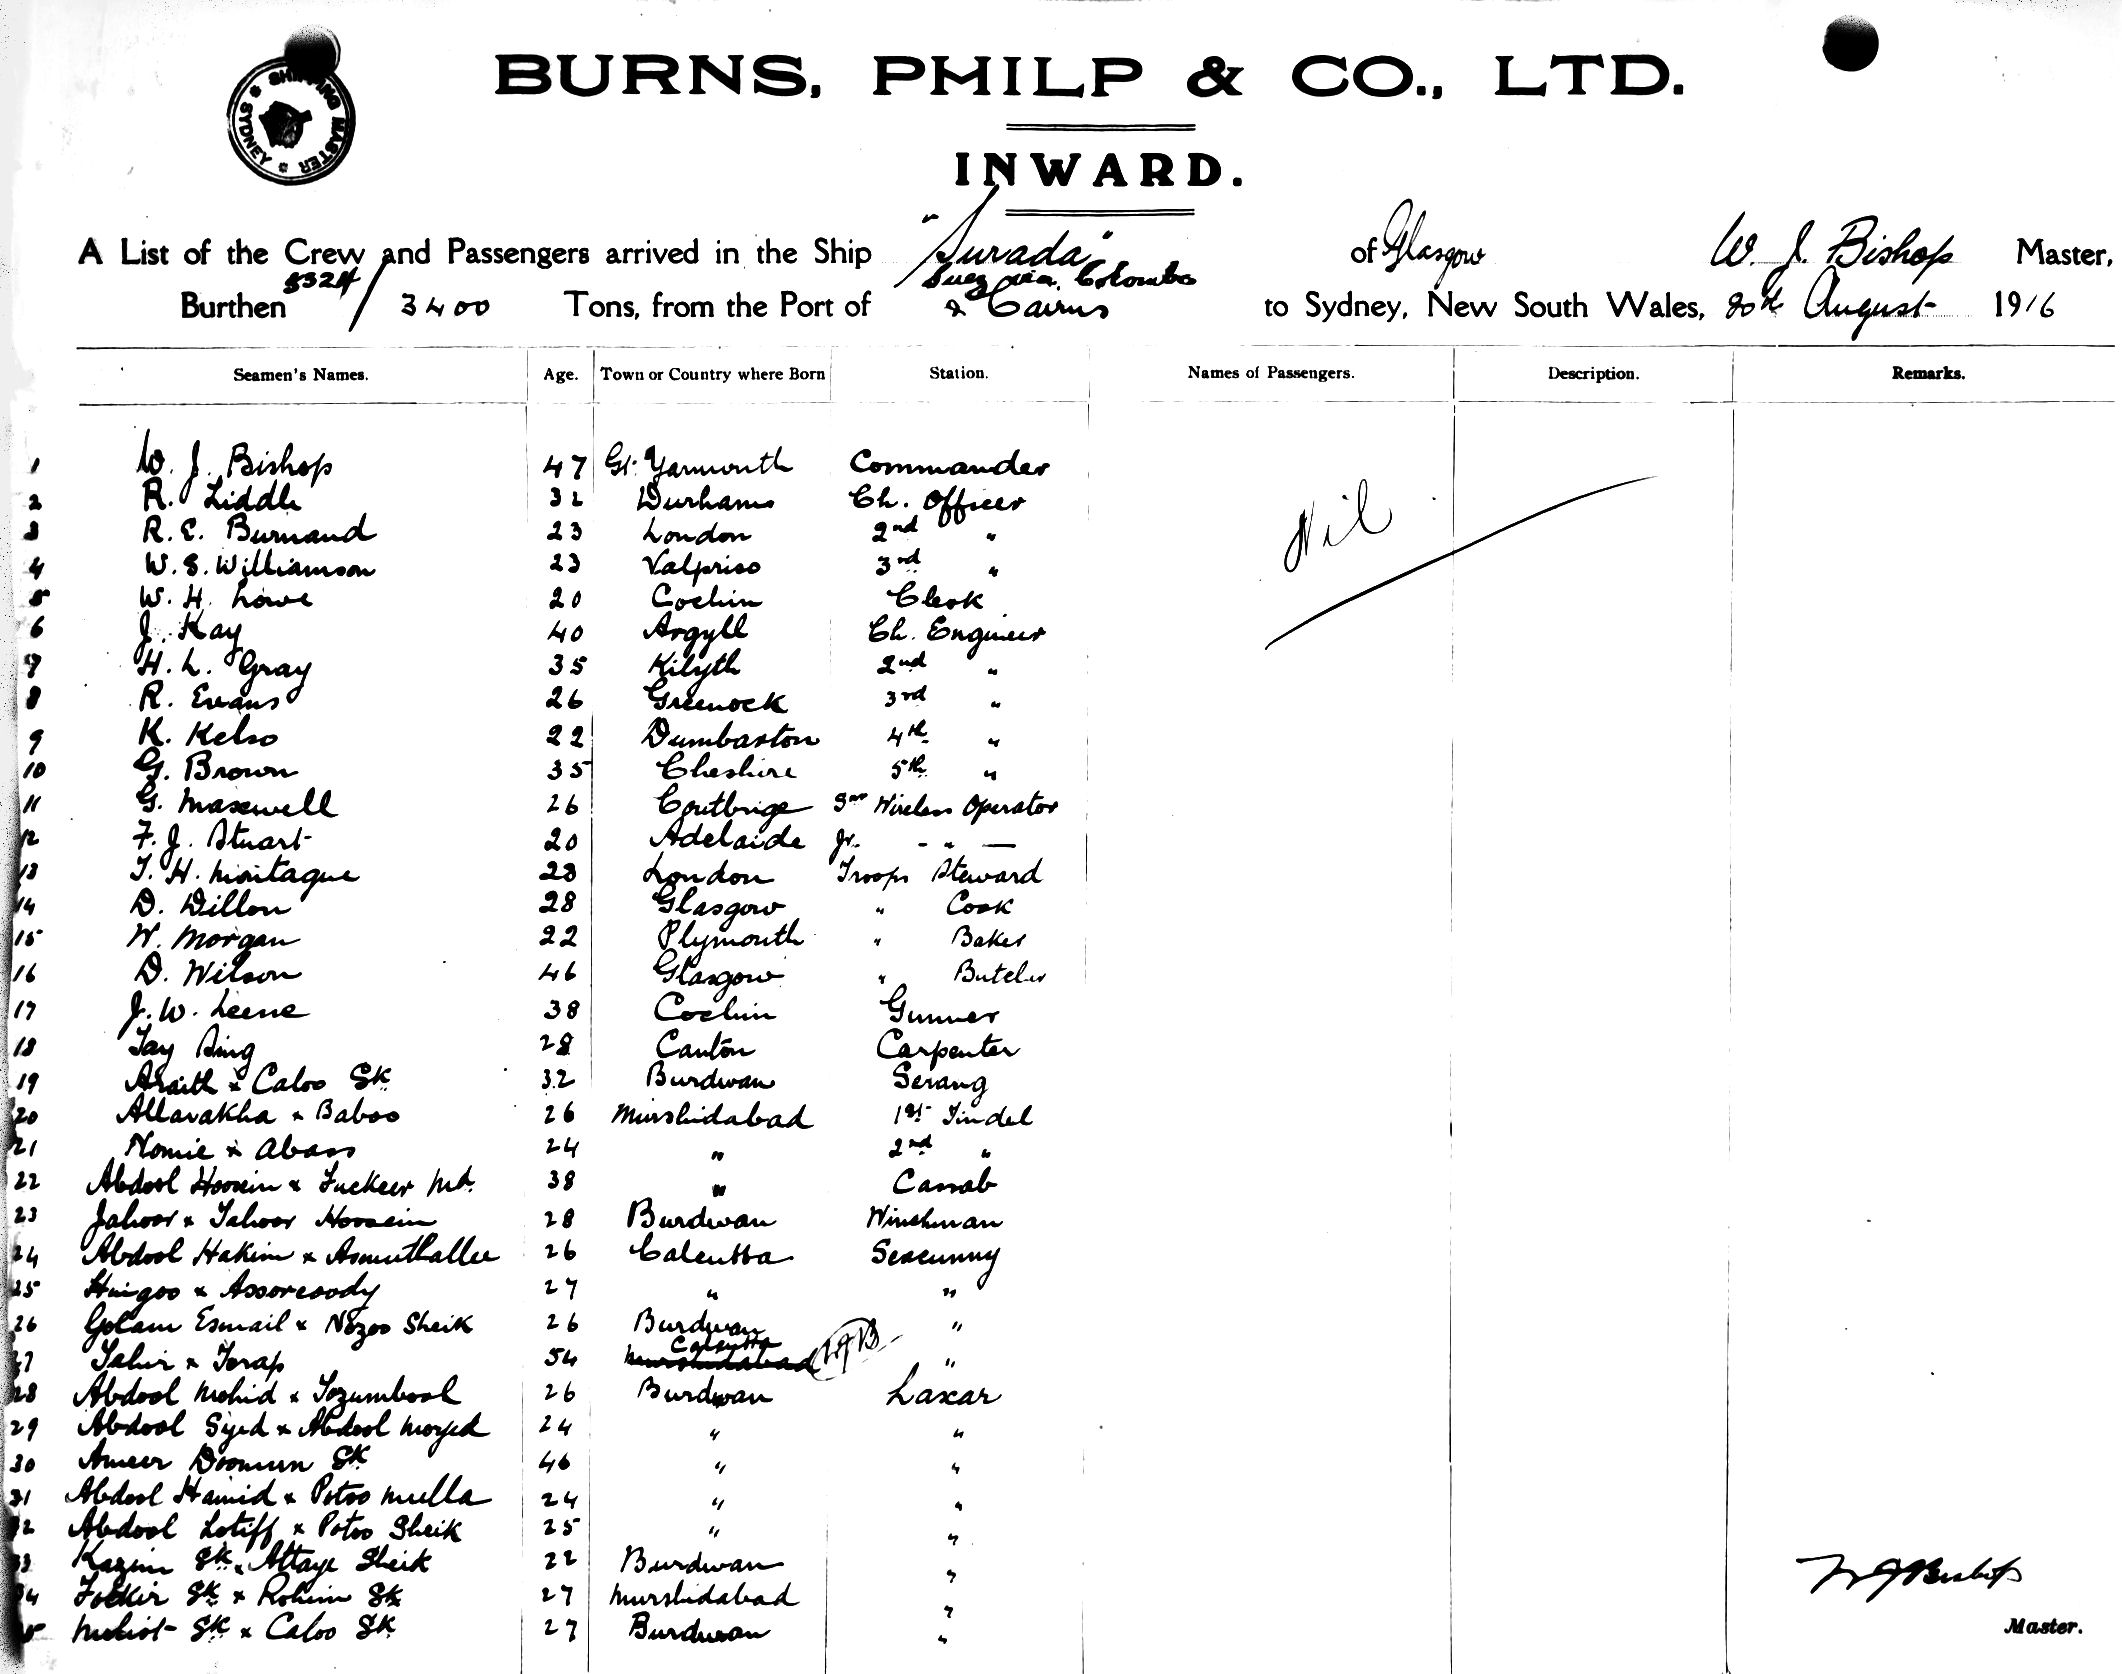 SHIPPING MASTER * SYDNEY *
BURNS, PHILP & CO., LTD.
INWARD.
A List of the Crew and Passengers arrived in the Ship "Surada" of Glasgow W. J. Bishop Master,
Burthen 5324/3400 Tons, from the Port of Suez via Colombo & Cairns to Sydney, New South Wales, 20th August 1916
Seamen's Names. Age. Town or Country where Born Station. Names of Passengers. Description. Remarks.
1 W. J. Bishop 47 Gt. Yarmouth Commander
2 R. Liddle 32 Durham Ch. Officer
3 R. E. Burnand 23 London 2nd "
4 W. S. Williamson 23 Valpriso 3rd "
Nil
5 W. H. Lowe 20 Cochin Clerk
6 J. Kay 40 Argyll Ch. Engineer
7 H. L. Gray 35 Kilyth 2nd "
8 R. Evans 26 Greenock 3rd "
9 K. Kelso 22 Dumbarton 4th "
10 G. Brown 35 Cheshire 5th "
11 G. Maxwell 26 Coutbrige Snr Wireless Operator
12 F. J. Stuart 20 Adelaide Jr. - " -
13 T. H. Montague 23 London Troops Steward
14 D. Dillon 28 Glasgow " Cook
15 W. Morgan 22 Plymouth " Baker
16 D. Wilson 46 Glasgow " Butcher
17 J. W. Leene 38 Cochin Gunner
18 Tay Sing 28 Canton Carpenter
19 Araith x Caloo Sk 32 Burdwan Serang
20 Allarakha x Baboo 26 Murshidabad 1st Tindel
21 Nomie x Abass 24 " 2nd "
22 Abdool Hoosein x Fuckeer Md. 38 " Cassab
23 Jahoor x Tahoor Hoosein 28 Burdwan Winchman
24 Abdool Hakim x Asmuthallee 26 Calcutta Seacunny
25 Hingoo x Assoreoody 27 " "
26 Golam Esmail x Nozoo Sheik 26 Burdwan "
27 Tahir x Torap 54 Murshidabad Calcutta WJB "
28 Abdool Mohid x Tozumbool 26 Burdwan Lascar
29 Abdool Syed x Abdool Moyed 24 " "
30 Ameer Doomun Sk 46 " "
31 Abdool Hamid x Potoo Mulla 24 " "
32 Abdool Lotiff x Potoo Sheik 25 " "
33 Kazim Sk x Attaye Sheik 22 Burdwan "
34 Fockir Sk x Rohim Sk 27 Murshidabad "
WJBishop
35 Mehiot Sk x Caloo Sk 27 Burdwan "
Master.